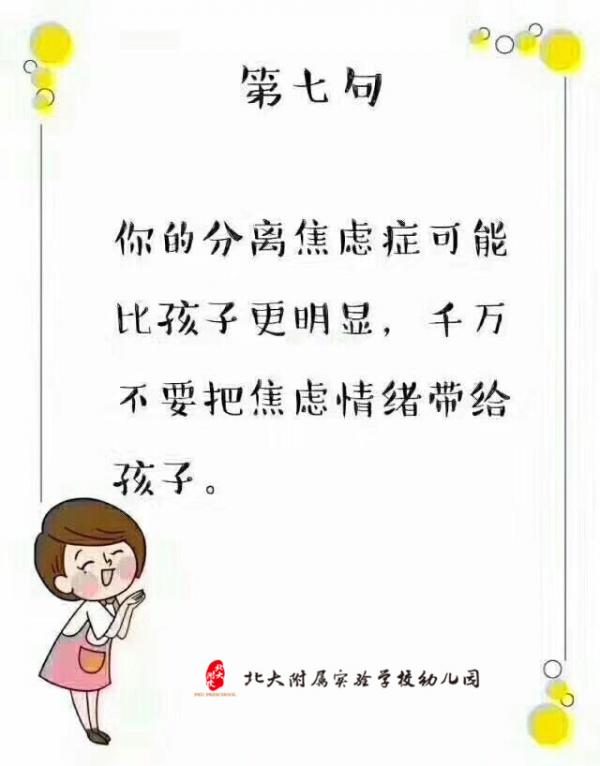 第七句
你的分离焦虑症可能
比孩子更明显，千万
不要把焦虑情绪带给
孩子。
北大附属实验学校幼儿园